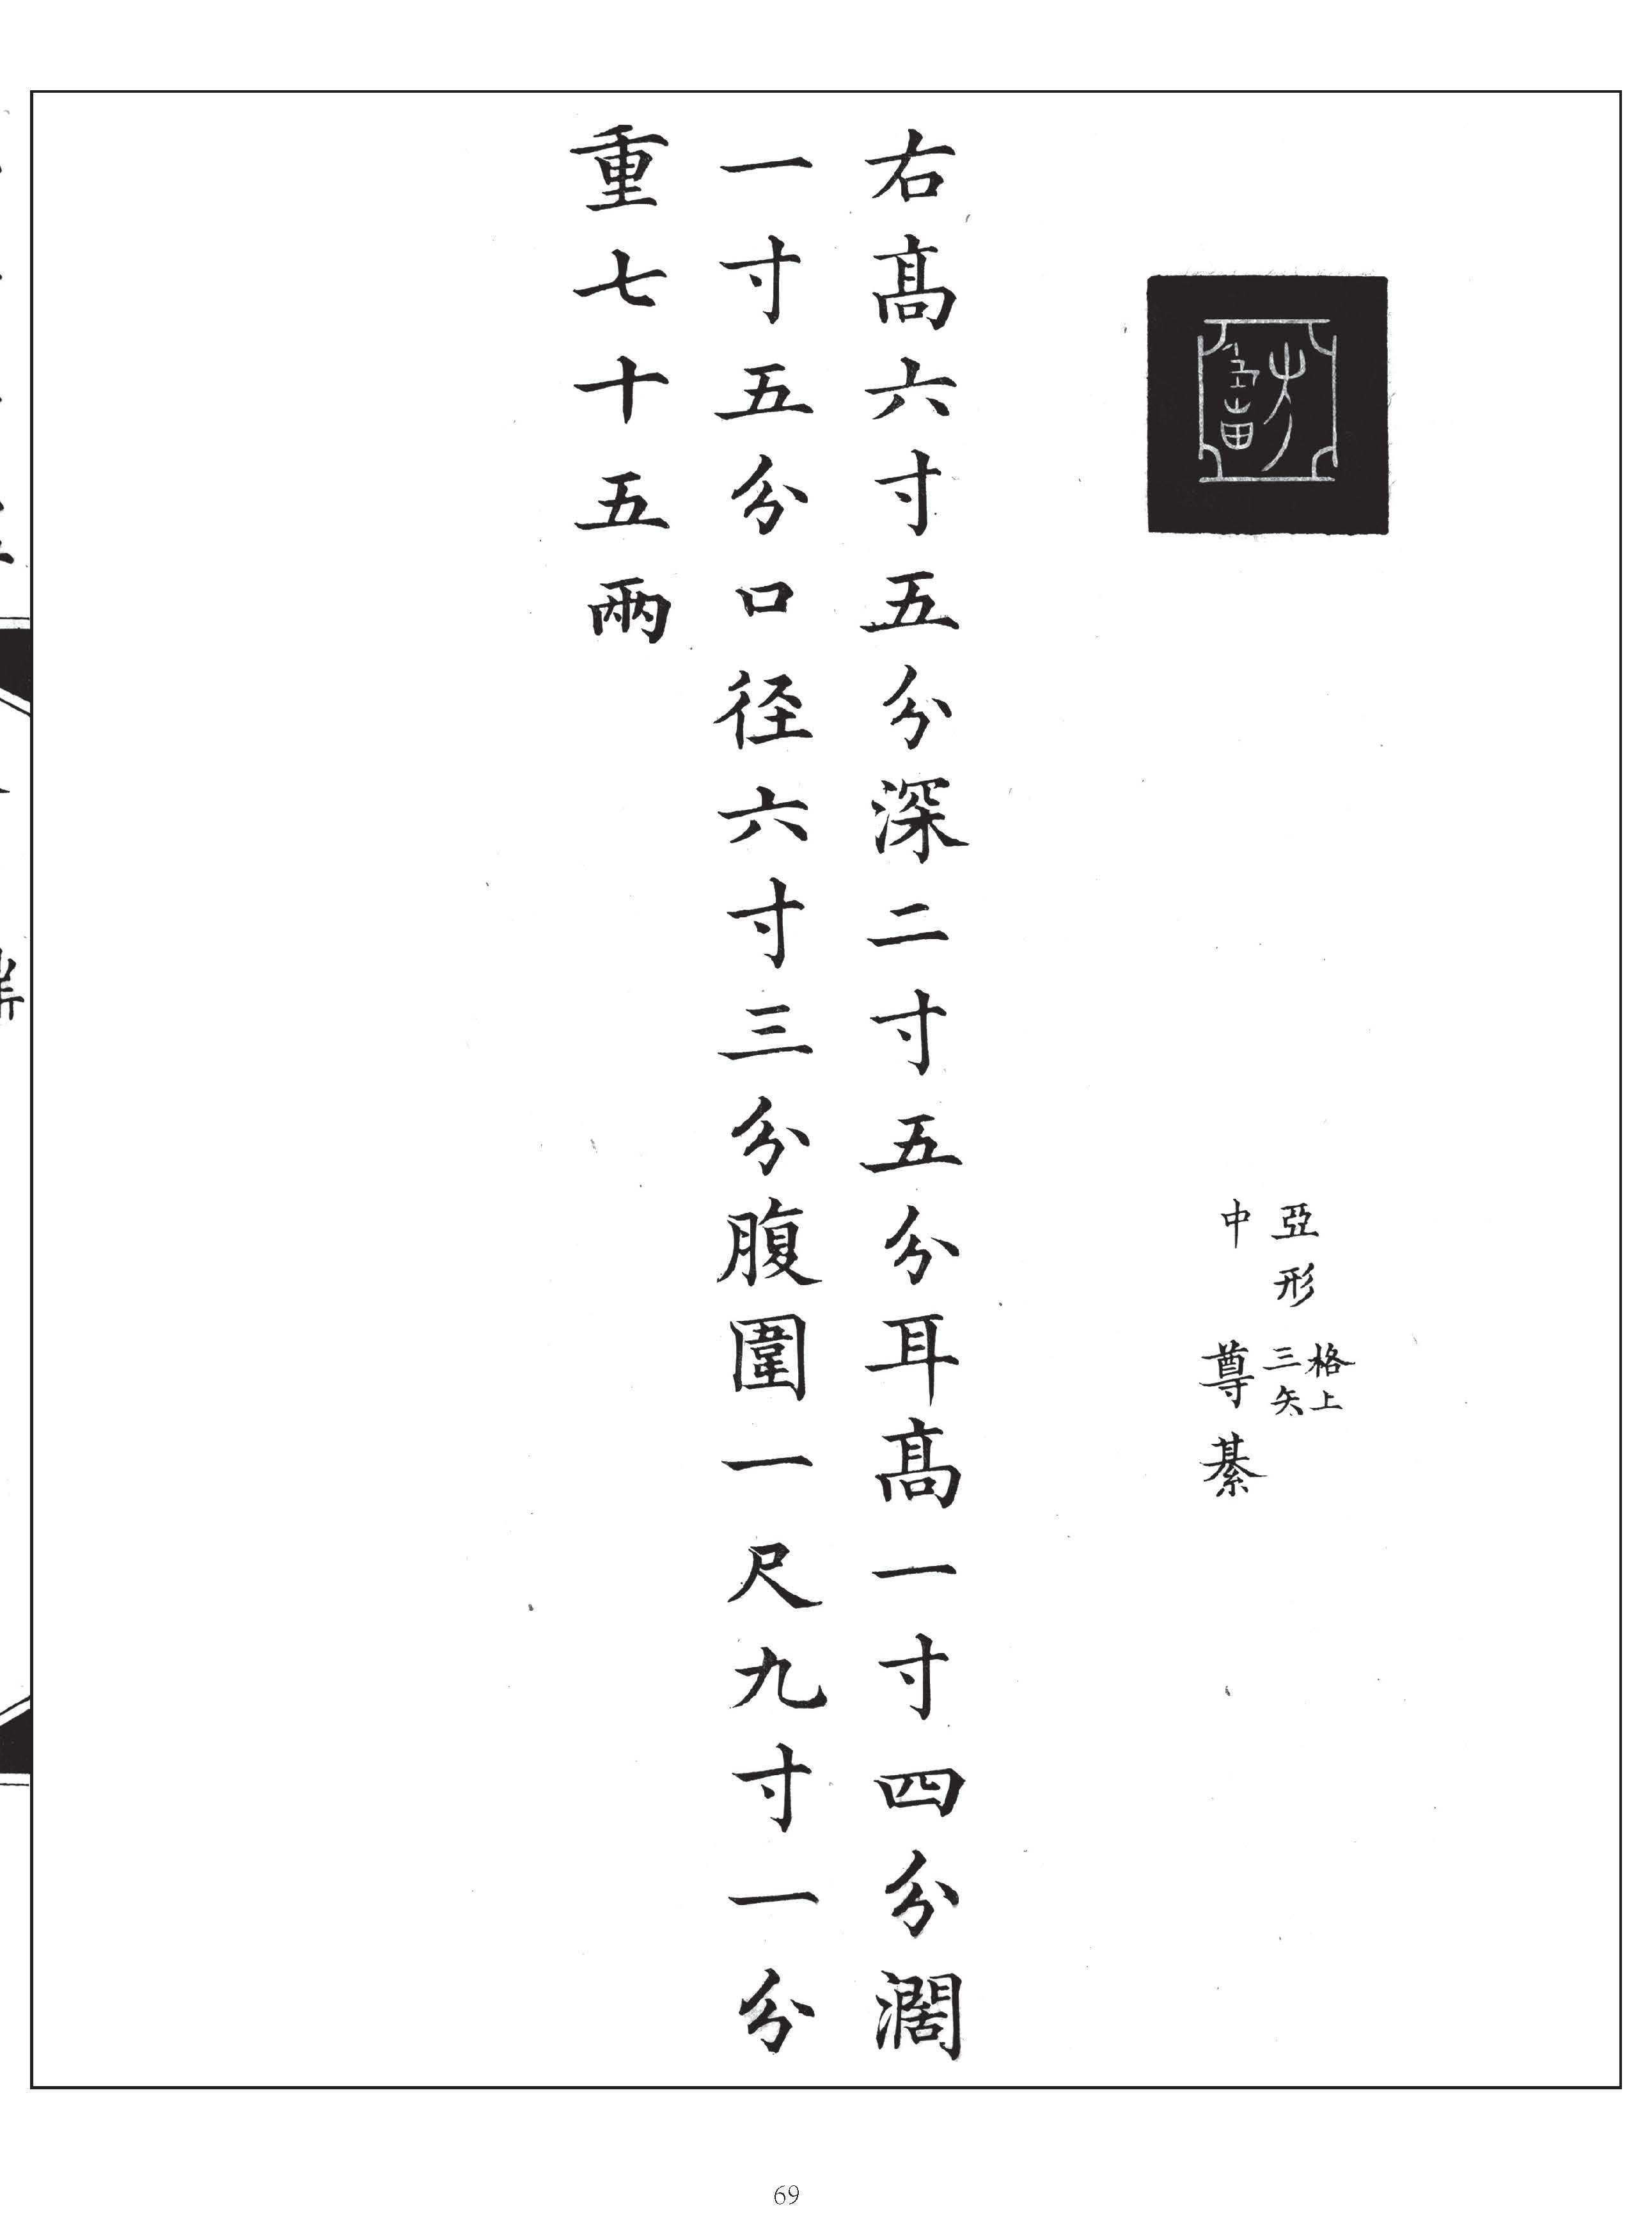 亞形格上三矢
中尊綦
右髙六寸五分深二寸五分耳髙一寸四分濶
一寸五分口径六寸三分腹圍一尺九寸一分
重七十五兩
69